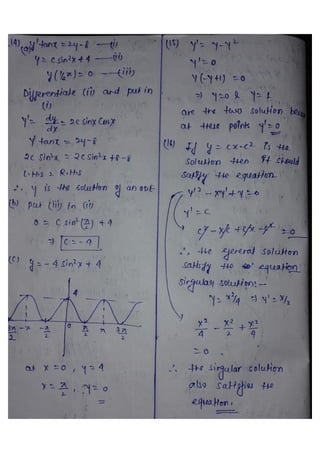 (14) y' tanx = 2y-8 —(i)
(a) y = c sin²x + 4 —(ii)
y(½π) = 0 —(iii)
Differentiate (ii) and put in
(i)
y' = dy/dx = 2c sinx cosx
y' tanx = 2y-8
2c sin²x = 2c sin²x +8-8
L.H.S = R.H.S
∴ y is the solution of an ODE
(b) put (iii) in (ii)
0 = C sin²(π/2) + 4
⇒ C = -4
(c) y = -4 sin²x + 4
4
3π/2 -π -π/2 0 π/2 π 3π/2
at x = 0, y = 4
x = π/2, y = 0
(15) y' = y-y²
y' = 0
y(-y+1) = 0
⇒ y=0 & y=1
are the two solution
at these points y'=0
(16) If y = cx-c² is the
solution then it should
satisfy the equation.
y'² - xy' + y = 0
y' = c
c² - xc + cx - c² = 0
∴ the general solution
satisfy the equation
singular solution:-
y = x²/4 ⇒ y' = x/2
x²/4 - x²/2 + x²/4
= 0.
∴ the singular solution
also satisfies the
equation.